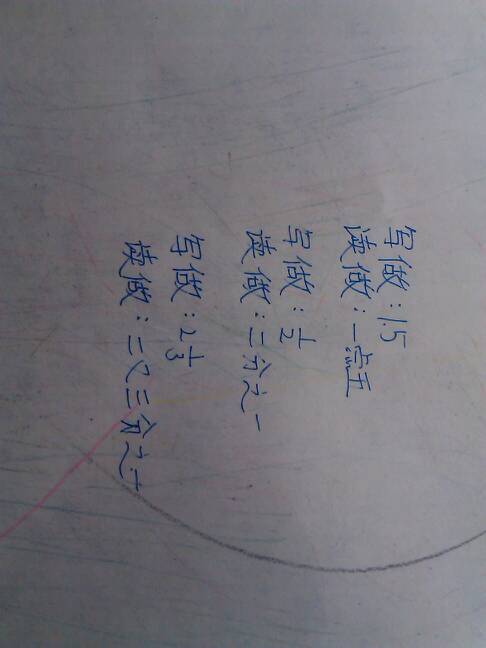 写做：1.5
读做：一点五
写做：1/2
读做：二分之一
写做：2 1/3
读做：二又三分之一